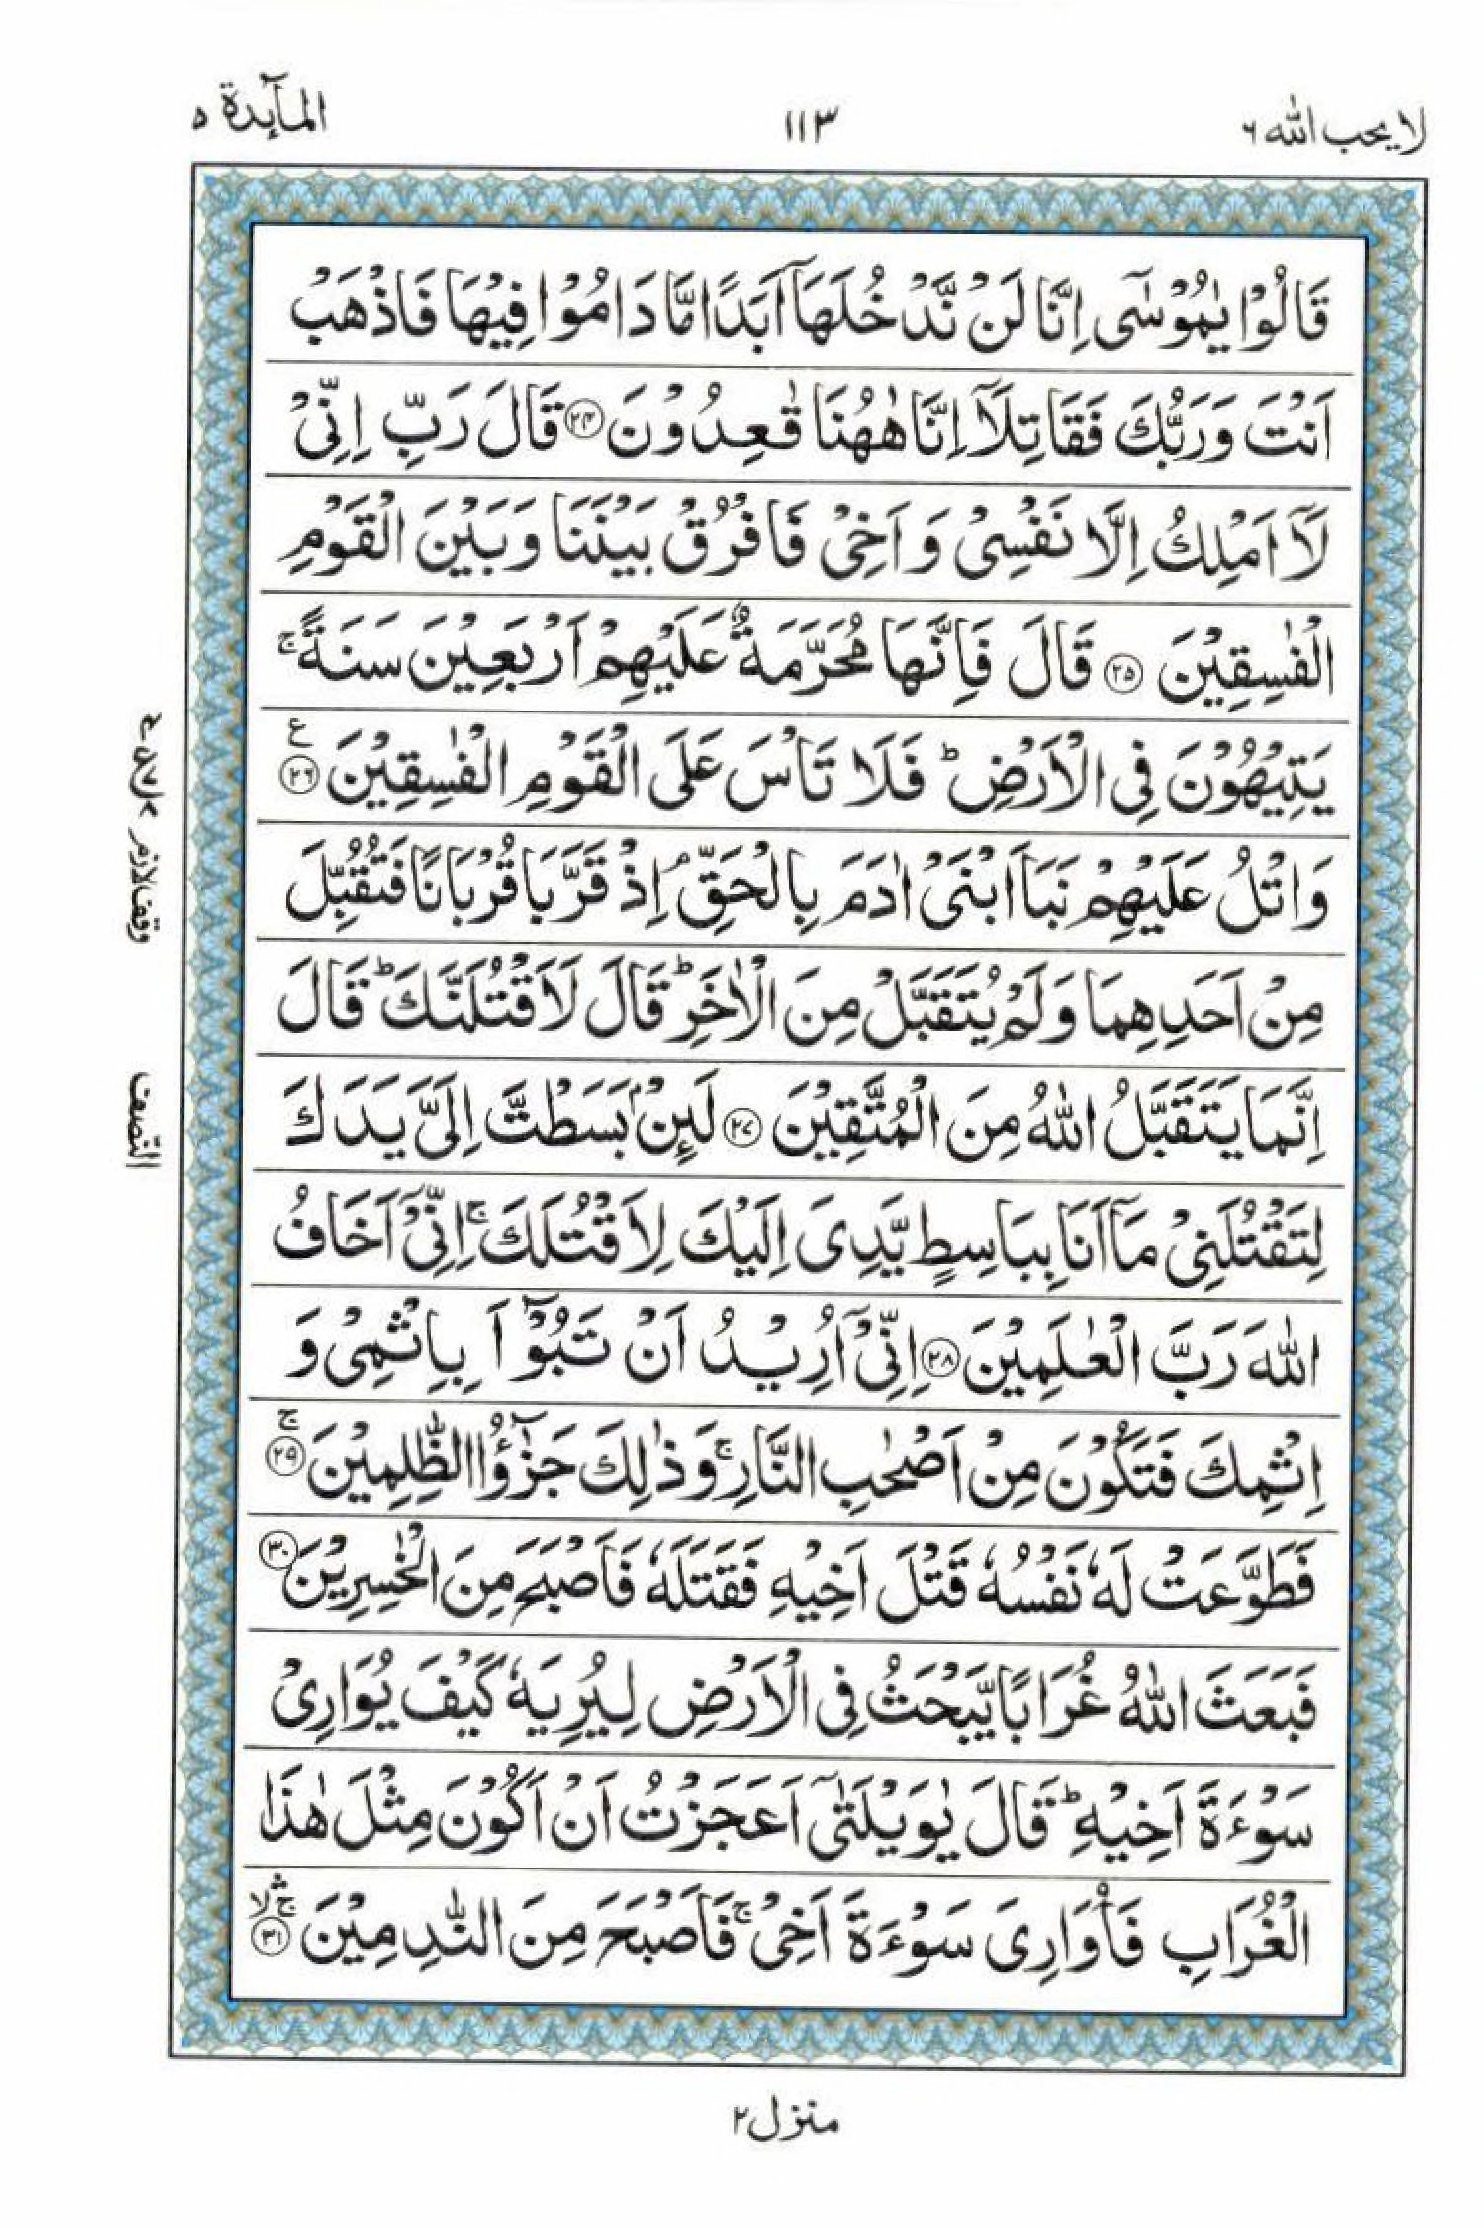 لا یحب الله ۶
۱۱۳
المآىِٕدة ۵
قَالُوْا یٰمُوْسٰۤى اِنَّا لَنْ نَّدْخُلَهَاۤ اَبَدًا مَّا دَامُوْا فِیْهَا فَاذْهَبْ
اَنْتَ وَرَبُّكَ فَقَاتِلَاۤ اِنَّا هٰهُنَا قٰعِدُوْنَ ﴿۲۴﴾ قَالَ رَبِّ اِنِّیْ
لَاۤ اَمْلِكُ اِلَّا نَفْسِیْ وَ اَخِیْ فَافْرُقْ بَیْنَنَا وَ بَیْنَ الْقَوْمِ
الْفٰسِقِیْنَ ﴿۲۵﴾ قَالَ فَاِنَّهَا مُحَرَّمَةٌ عَلَیْهِمْ اَرْبَعِیْنَ سَنَةً ۚ
یَتِیْهُوْنَ فِی الْاَرْضِ ؕ فَلَا تَاْسَ عَلَى الْقَوْمِ الْفٰسِقِیْنَ ﴿۲۶﴾ ع
وَاتْلُ عَلَیْهِمْ نَبَاَ ابْنَیْ اٰدَمَ بِالْحَقِّ ۘ اِذْ قَرَّبَا قُرْبَانًا فَتُقُبِّلَ
مِنْ اَحَدِهِمَا وَلَمْ یُتَقَبَّلْ مِنَ الْاٰخَرِ ؕ قَالَ لَاَقْتُلَنَّكَ ؕ قَالَ
اِنَّمَا یَتَقَبَّلُ اللّٰهُ مِنَ الْمُتَّقِیْنَ ﴿۲۷﴾ لَىِٕنْۢ بَسَطْتَّ اِلَیَّ یَدَكَ
لِتَقْتُلَنِیْ مَاۤ اَنَا بِبَاسِطٍ یَّدِیَ اِلَیْكَ لِاَقْتُلَكَ ۚ اِنِّیْۤ اَخَافُ
اللّٰهَ رَبَّ الْعٰلَمِیْنَ ﴿۲۸﴾ اِنِّیْۤ اُرِیْدُ اَنْ تَبُوْٓاَ بِاِثْمِیْ وَ
اِثْمِكَ فَتَكُوْنَ مِنْ اَصْحٰبِ النَّارِ ۚ وَذٰلِكَ جَزٰٓؤُا الظّٰلِمِیْنَ ﴿۲۹﴾ ۚ
فَطَوَّعَتْ لَهٗ نَفْسُهٗ قَتْلَ اَخِیْهِ فَقَتَلَهٗ فَاَصْبَحَ مِنَ الْخٰسِرِیْنَ ﴿۳۰﴾
فَبَعَثَ اللّٰهُ غُرَابًا یَّبْحَثُ فِی الْاَرْضِ لِیُرِیَهٗ كَیْفَ یُوَارِیْ
سَوْءَةَ اَخِیْهِ ؕ قَالَ یٰوَیْلَتٰۤى اَعَجَزْتُ اَنْ اَكُوْنَ مِثْلَ هٰذَا
الْغُرَابِ فَاُوَارِیَ سَوْءَةَ اَخِیْ ۚ فَاَصْبَحَ مِنَ النّٰدِمِیْنَ ﴿۳۱﴾ ۚۛۙ
وقف لازم
النّصف
منزل ۲